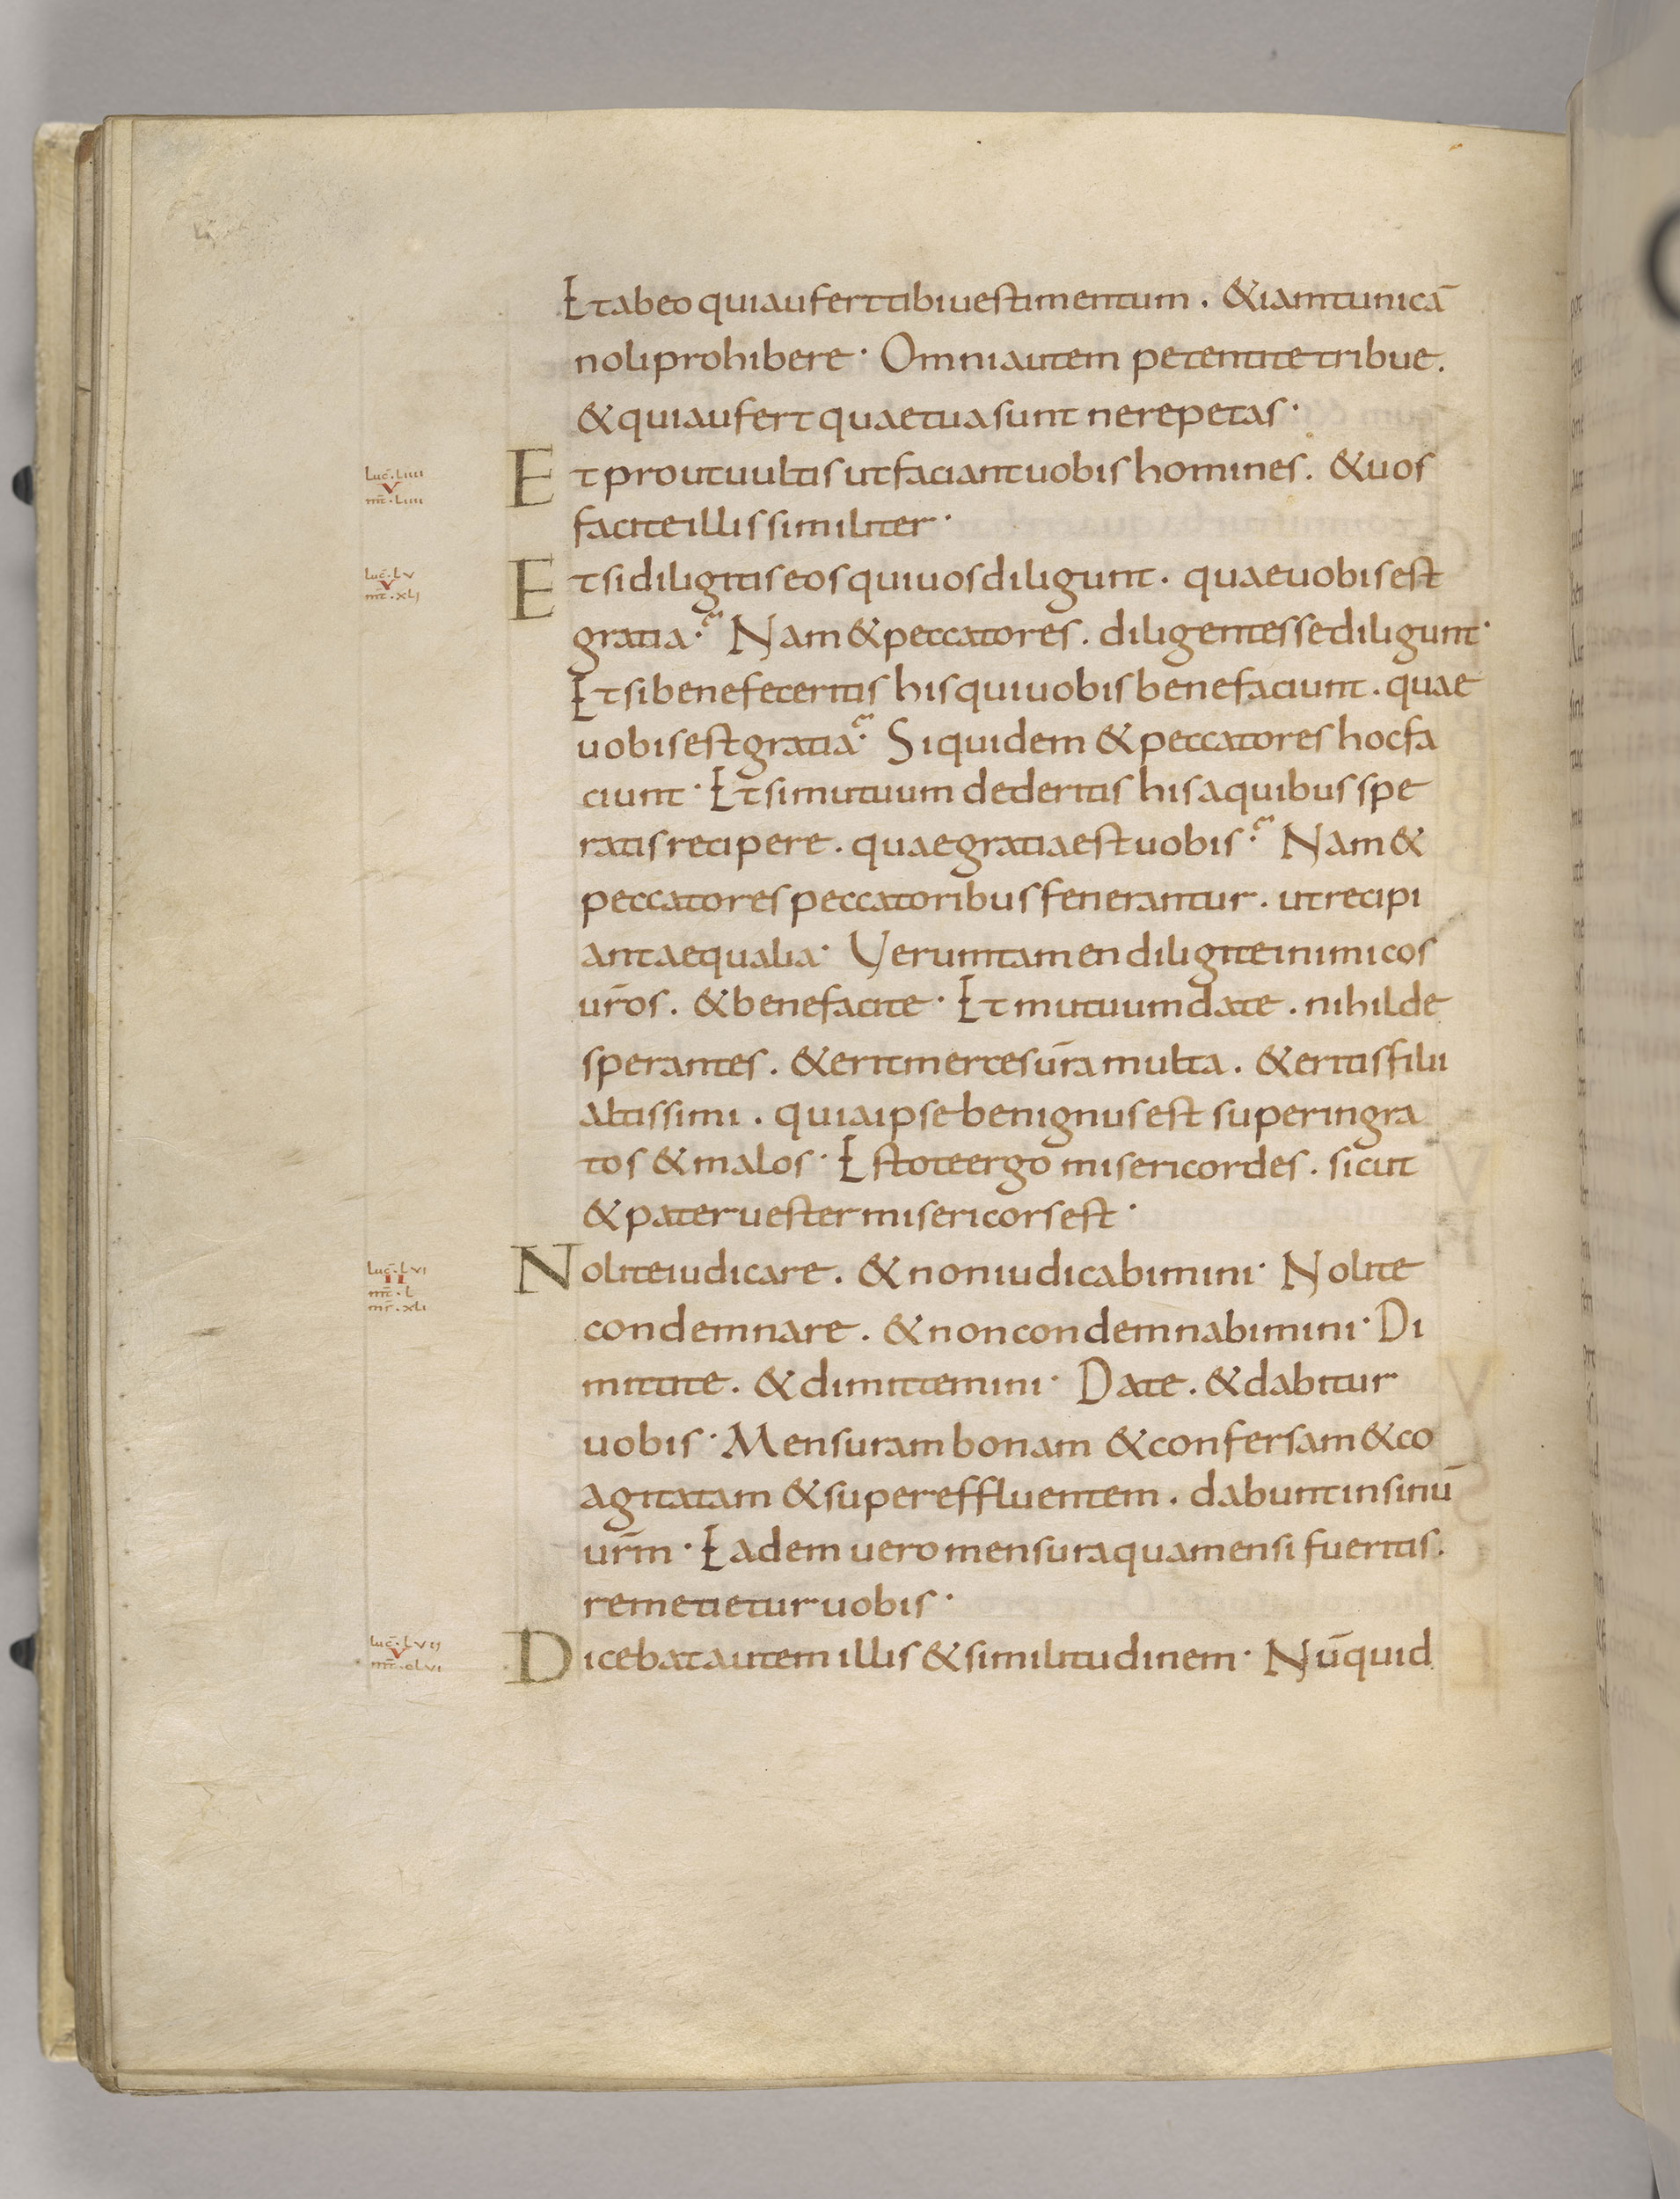 Et ab eo qui aufert tibi uestimentum . &iam tunicā
noli prohibere · Omni autem petenti te tribue .
& qui aufert quae tua sunt ne repetas ·
luc̄ . Liiii
V
mt̄ . Liiii
Et prout uultis ut faciant uobis homines . & uos
facite illis similiter ·
luc̄ . Lv
V
mt̄ . xLi
Et si diligitis eos qui uos diligunt . quae uobis est
gratia · Nam & peccatores . diligentes se diligunt ·
Et si benefeceritis his qui uobis benefaciunt . quae
uobis est gratia · Siquidem & peccatores hoc fa
ciunt · Et si mutuum dederitis his a quibus spe
ratis recipere . quae gratia est uobis · Nam &
peccatores peccatoribus fenerantur . ut recipi
ant aequalia · Veruntamen diligite inimicos
ur̄os . & benefacite · Et mutuum date . nihil de
sperantes . & erit merces ur̄a multa . & eritis filii
altissimi . quia ipse benignus est super ingra
tos & malos · Estote ergo misericordes . sicut
& pater uester misericors est ·
luc̄ . Lvi
II
mt̄ . L
mr̄ . xLi
Nolite iudicare . & non iudicabimini · Nolite
condemnare . & non condemnabimini · Di
mittite . & dimittemini · Date . & dabitur
uobis · Mensuram bonam & confersam & co
agitatam & supereffluentem . dabunt in sinū
ur̄m · Eadem uero mensura qua mensi fueritis .
remetietur uobis ·
luc̄ . Lvii
V
mt̄ . cLvi
Dicebat autem illis & similitudinem · Nūquid